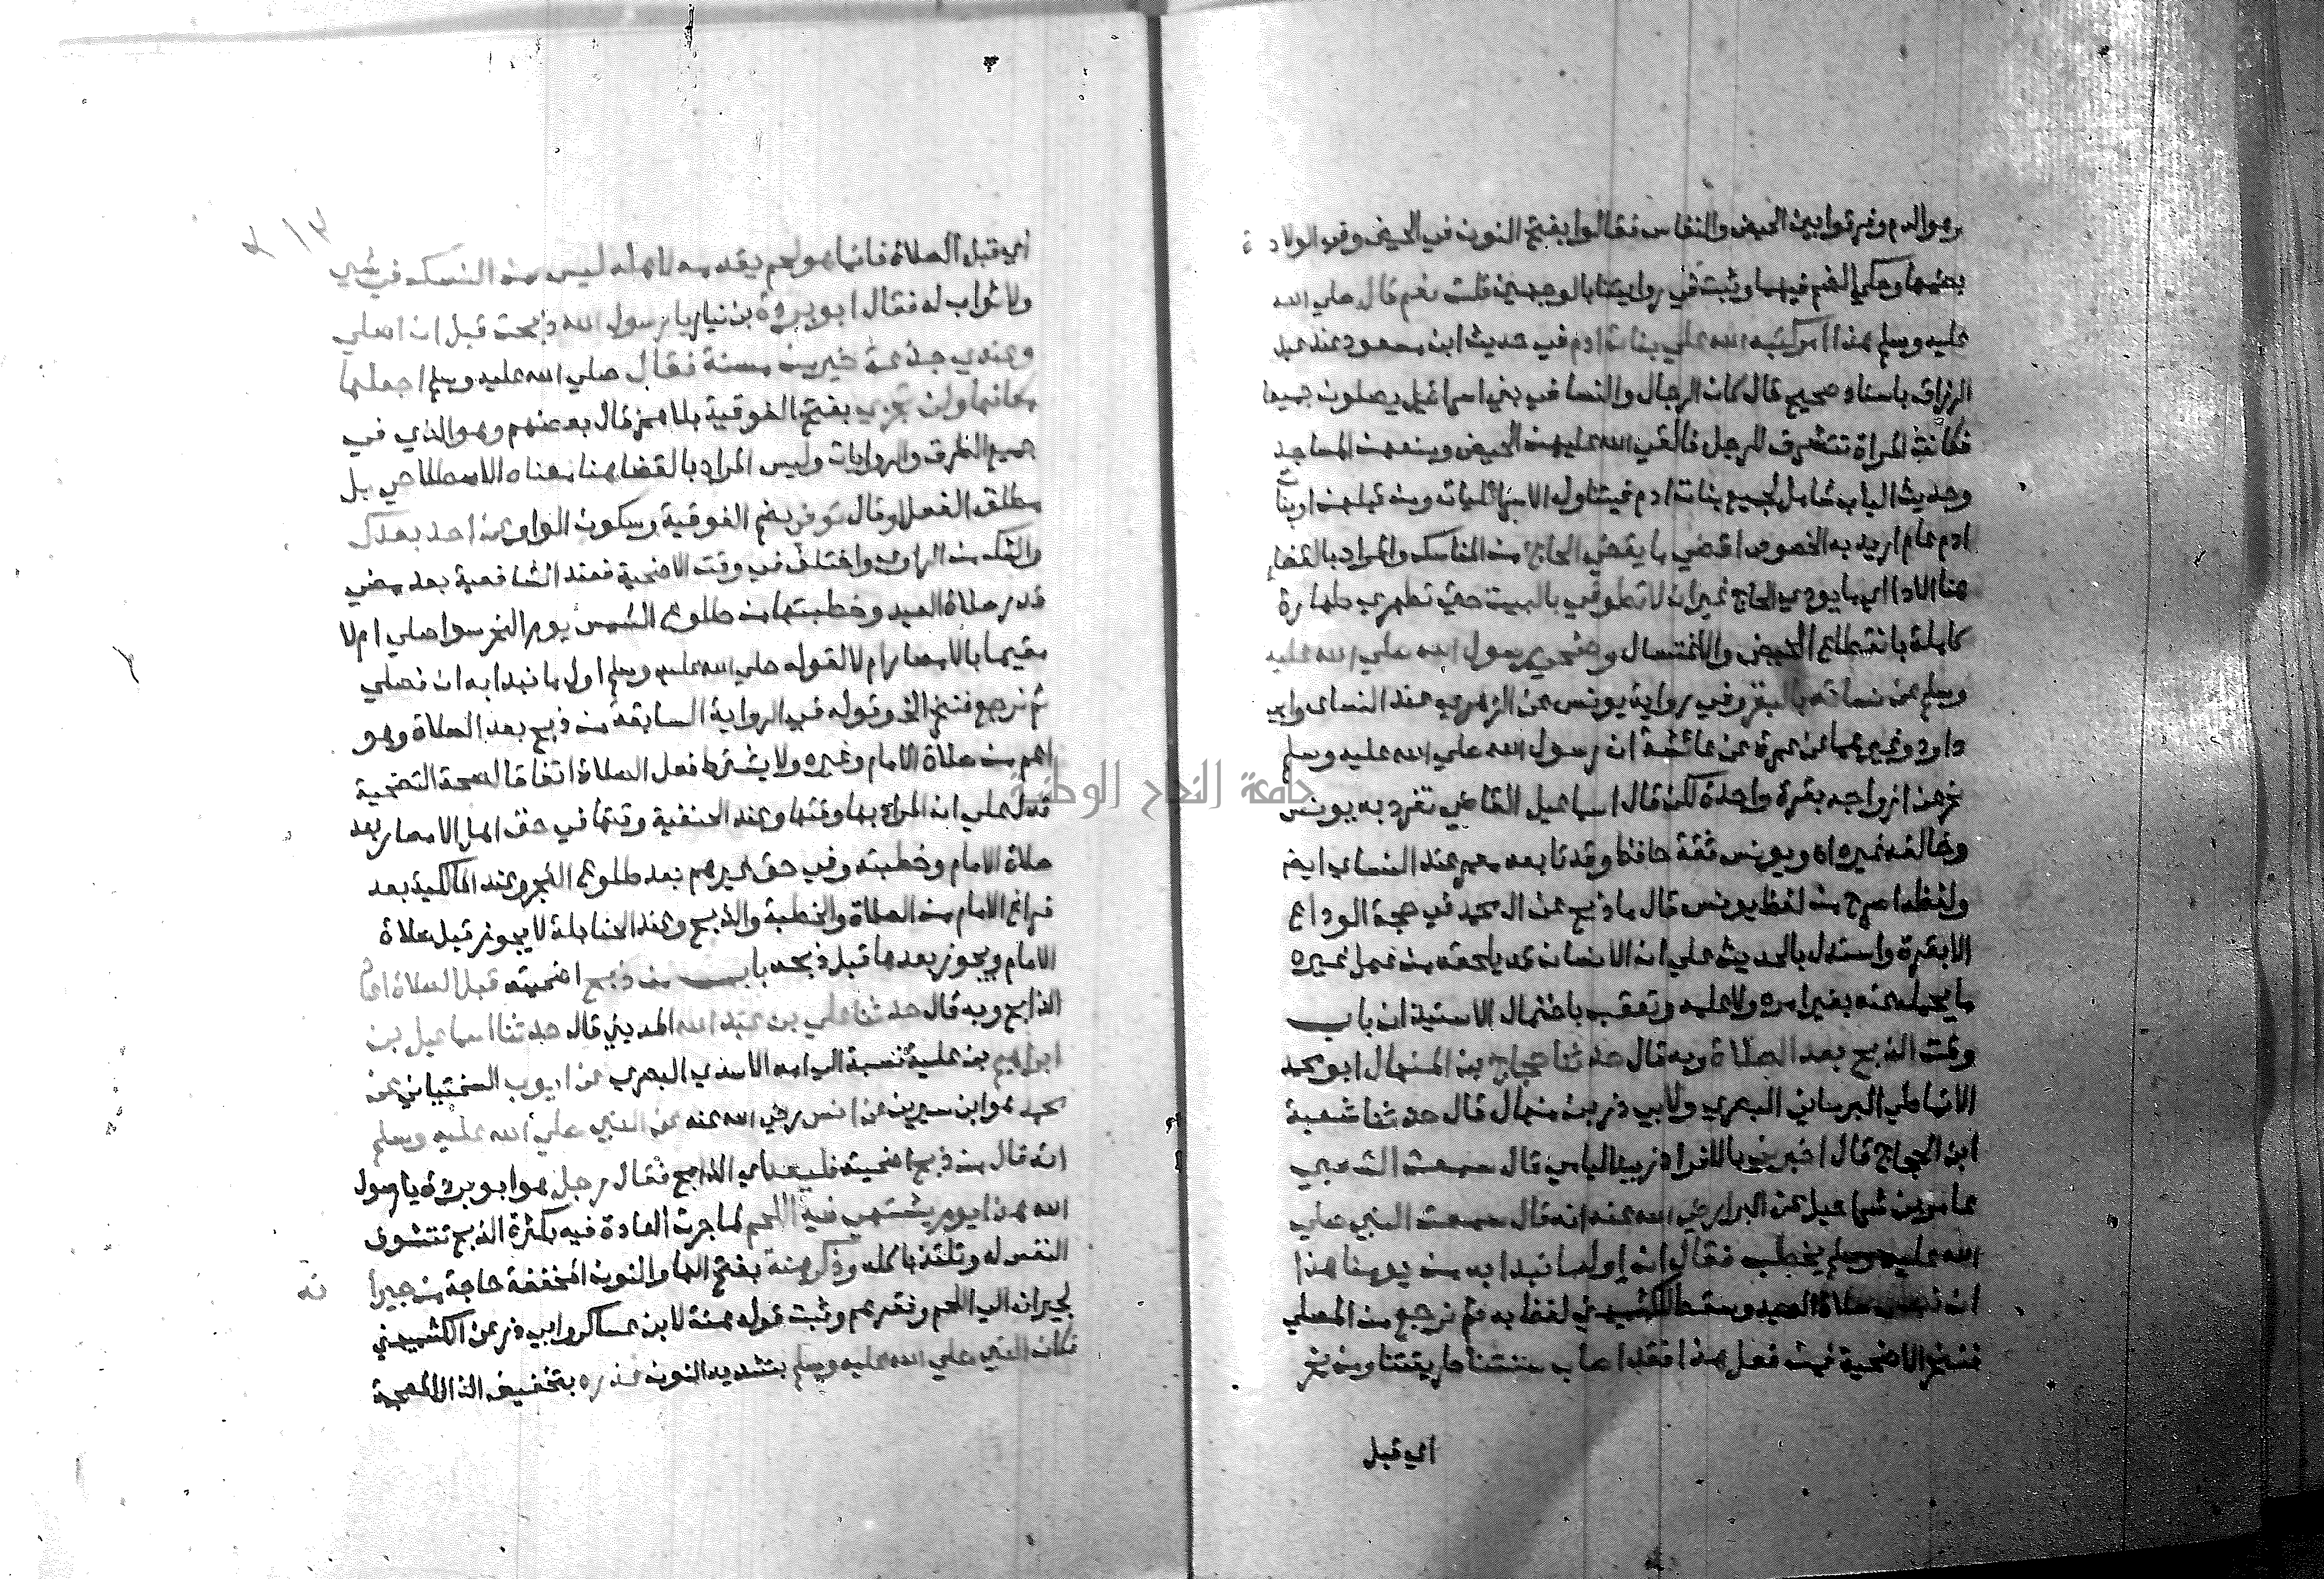 وهو الدم وفرقوا بين الحيض والنفاس فقالوا بفتح النون في الحيض وفي الولادة
بضمها وحكي الضم فيهما وثبت في روايتنا بالوجهين قلت نعم قال صلي الله
عليه وسلم هذا امر كتبه الله علي بنات ادم في حديث ابن مسعود عند عبد
الرزاق باسناد صحيح قال كان الرجال والنسا في بني اسرائيل يصلون جميعا
فكانت المراة تتشرف للرجل فالقي الله عليهن الحيض ومنعهن المساجد
وحديث الباب شامل لجميع بنات ادم فيتناول الاسرائليات ومن قبلهن او بنات
ادم عام اريد به الخصوص اقضي ما يقضي الحاج من المناسك والمراد بالقضا
هنا الادا اي ما يودي الحاج غير ان لا تطوفي بالبيت حتي تطهري طهارة
كاملة بانقطاع الحيض والاغتسال وضحي رسول الله صلي الله عليه
وسلم عن نسائه بالبقر وفي رواية يونس عن الزهري عند النساي وابي
داود وغيرهما عن عمرة عن عائشة ان رسول الله صلي الله عليه وسلم
نحر عن ازواجه بقرة واحدة لكن قال اسماعيل القاضي تفرد به يونس
وخالفه غيره اه ويونس ثقة حافظ وقد تابعه معمر عند النساي ايض
ولفظه اصرح من لفظ يونس قال ما ذبح عن ال محمد في حجة الوداع
الا بقرة واستدل بالحديث علي ان الانسان قد يلحقه من عمل غيره
ما يحمله عنه بغير امره ولا علمه وتعقب باحتمال الاستيذان باب
وقت الذبح بعد الصلاة وبه قال حدثنا حجاج بن المنهال ابو محمد
الانماطي البرساني البصري ولابي ذر بن منهال قال حدثنا شعبة
ابن الحجاج قال اخبرني بالافراد زبيد اليامي قال سمعت الشعبي
عامر بن شراحيل عن البرا رضي الله عنه انه قال سمعت النبي صلي
الله عليه وسلم يخطب فقال ان اول ما نبدا به من يومنا هذا
ان نصلي صلاة العيد وسقط للكشميهني لفظ به ثم نرجع من المصلي
فننحر الاضحية فمن فعل هذا فقد اصاب سنتنا طريقتنا ومن نحر
اي قبل
اي قبل الصلاة فانما هو لحم يقدمه لاهله ليس من النسك في شي
ولا ثواب له فقال ابو بردة بن نيار يا رسول الله ذبحت قبل ان اصلي
وعندي جذعة خير من مسنة فقال صلي الله عليه وسلم اجعلها
مكانها ولن تجزي بفتح الفوقية بلا همز قال بعضهم وهو الذي في
جميع الطرق والروايات وليس المراد بالقضا هنا معناه الاصطلاحي بل
مطلق الفعل او قال توفي بضم الفوقية وسكون الواو عن احد بعدك
والشك من الراوي واختلف في وقت الاضحية فعند الشافعية بعد مضي
قدر صلاة العيد وخطبتها من طلوع الشمس يوم النحر سوا صلي ام لا
مقيما بالامصار ام لا لقوله صلي الله عليه وسلم اول ما نبدا به ان نصلي
ثم نرجع فننحر الخ وقوله في الرواية السابقة من ذبح بعد الصلاة وهو
اعم من صلاة الامام وغيره ولا يشترط فعل الصلاة اتفاقا لصحة التضحية
فدل علي ان المراد بها وقتها وعند الحنفية وقتها في حق اهل الامصار بعد
صلاة الامام وخطبته وفي حق غيرهم بعد طلوع الفجر وعند المالكية بعد
فراغ الامام من الصلاة والخطبة والذبح وعند الحنابلة لا يجوز قبل صلاة
الامام ويجوز بعدها قبل ذبحه باب من ذبح اضحيته قبل الصلاة اعاد
الذابح وبه قال حدثنا علي بن عبد الله المديني قال حدثنا اسماعيل بن
ابراهيم بن علية نسبة الي امه الاسدي البصري عن ايوب السختياني عن
محمد هو ابن سيرين عن انس رضي الله عنه عن النبي صلي الله عليه وسلم
انه قال من ذبح اضحيته فليعد اي الذابح فقال رجل هو ابو بردة يا رسول
الله هذا يوم يشتهي فيه اللحم لما جرت العادة فيه بكثرة الذبح تتشوف
النفس له وتلتذ باكله وذكر هنة بفتح الها والنون المخففة حاجة من جيرا
نه
لجيرانه الي اللحم وفقرهم وثبت قوله هنة لابن عساكر وابي ذر عن الكشميهني
فكان النبي صلي الله عليه وسلم بتشديد النون عذره بتخفيف الذال المعجمة
جامعة النجاح الوطنية